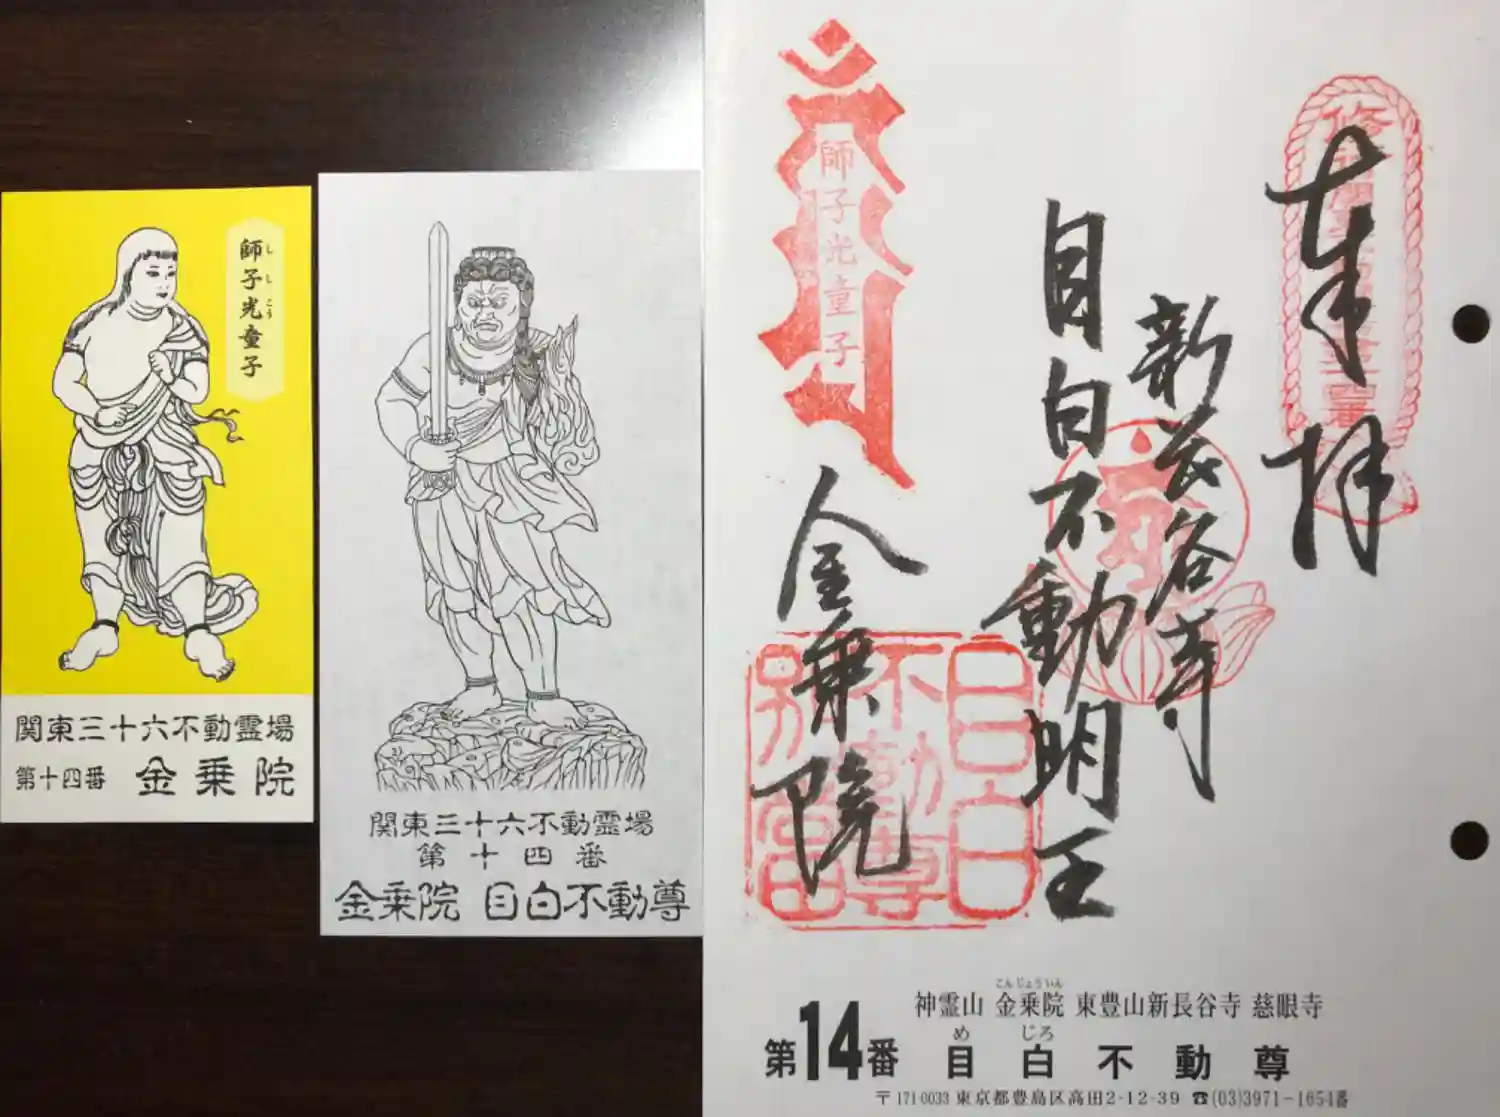 師子光童子
し し こう
関東三十六不動霊場
第十四番 金乗院
関東三十六不動霊場
第十四番
金乗院 目白不動尊
奉拝
新長谷寺
目白不動明王
師子光童子
金乗院
目白
不動尊
こんじょういん
神霊山 金乗院 東豊山新長谷寺 慈眼寺
め じろ
第14番 目白不動尊
〒171-0033 東京都豊島区高田2-12-39 ☎(03)3971-1654番